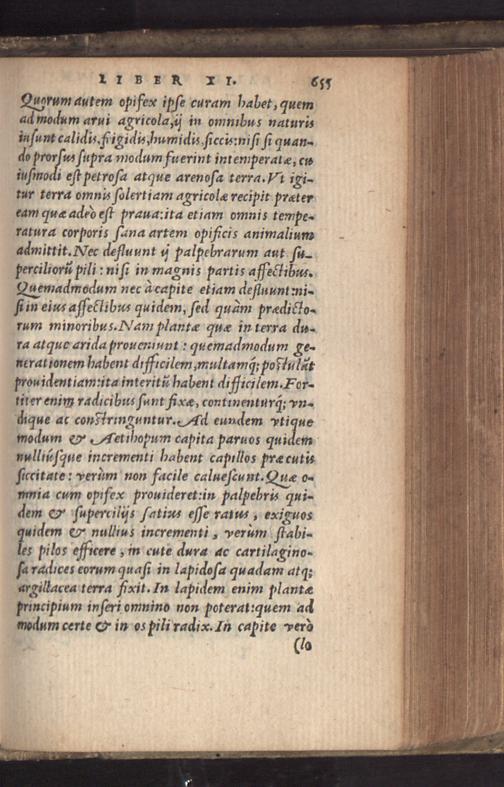 LIBER XI. 655
Quorum autem opifex ipse curam habet, quem
admodum arui agricola, ij in omnibus naturis
insunt calidis, frigidis, humidis, siccis: nisi si quan-
do prorsus supra modum fuerint intemperatæ, cu
iusmodi est petrosa atque arenosa terra. Vt igi-
tur terra omnis solertiam agricolæ recipit præter
eam quæ adeò est praua: ita etiam omnis tempe-
ratura corporis sana artem opificis animalium
admittit. Nec defluunt ij palpebrarum aut su-
perciliorũ pili: nisi in magnis partis affectibus.
Quemadmodum nec à capite etiam defluunt: ni-
si in eius affectibus quidem, sed quàm prædicto-
rum minoribus. Nam plantæ quæ in terra du-
ra atque arida proueniunt: quemadmodum ge-
nerationem habent difficilem, multamq; postulãt
prouidentiam: ita interitũ habent difficilem. For-
titer enim radicibus sunt fixæ, continenturq; vn-
dique ac constringuntur. Ad eundem vtique
modum & Aethopum capita paruos quidem
nulliúsque incrementi habent capillos præ cutis
siccitate: verùm non facile caluescunt. Quæ o-
mnia cum opifex prouideret: in palpebris qui-
dem & supercilijs satius esse ratus, exiguos
quidem & nullius incrementi, verùm stabi-
les pilos efficere, in cute dura ac cartilagino-
sa radices eorum quasi in lapidosa quadam atq;
argillacea terra fixit. In lapidem enim plantæ
principium inseri omnino non poterat: quem ad
modum certe & in os pili radix. In capite verò
(lo